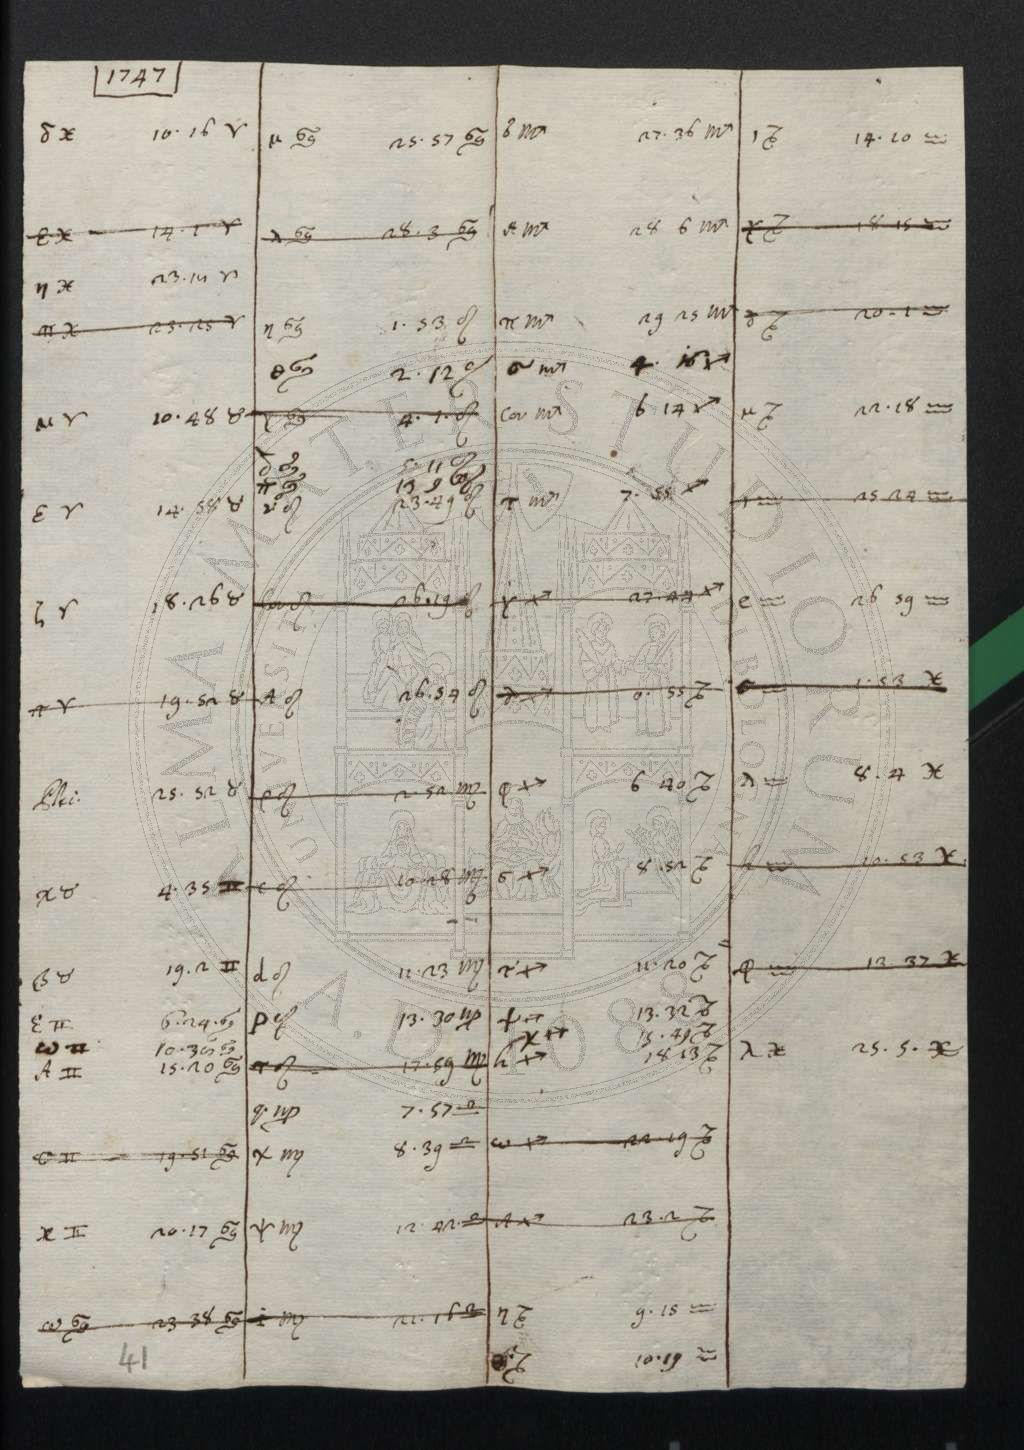 1747
δ ♓ 10. 16 ♈
ε ♓ 14. 1 ♈
η ♓ 23. 14 ♈
π ♓ 23. 25 ♈
μ ♈ 10. 48 ♉
ε ♈ 14. 58 ♉
ζ ♈ 18. 26 ♉
π ♈ 19. 52 ♉
Plei. 25. 52 ♉
χ ♉ 4. 35 ♊
β ♉ 19. 2 ♊
ε ♊ 6. 24. ♋
ω ♊ 10. 36 ♋
A ♊ 15. 20 ♋
♊ 19. 51 ♋
κ ♊ 20. 17 ♋
ω ♋ 23 38 ♋
μ ♋ 25. 57 ♋
λ ♋ 28. 3 ♋
η ♋ 1. 53 ♌
θ ♋ 2. 12 ♌
γ ♋ 4. 1. ♌
δ ♋ 5. 11 ♌
π ♋ 13 9 ♌
ν ♌ 23. 49 ♌
♌ 26. 19 ♌
A ♌ 26. 54 ♌
ρ ♌ 2. 52 ♍
c ♌ 10. 28 ♍
d ♌ 11. 23 ♍
p ♌ 13. 30 ♍
♌ 17. 59 ♍
q. ♍ 7. 57 ♎
χ ♍ 8. 39 ♎
ψ ♍ 12. 42. ♎
i ♍ 22. 16 ♎
δ ♏ 27. 36 ♏
♏ 28 6 ♏
π ♏ 29 25 ♏
σ ♏ 4. 16 ♐
Cor ♏ 6 14 ♐
τ ♏ 7. 55 ♐
γ ♐ 27. 44 ♐
λ ♐ 0. 55 ♑
φ ♐ 6 40 ♑
σ ♐ 8. 52 ♑
τ ♐ 11. 20 ♑
ψ ♐ 13. 32 ♑
χ ♐ 15. 49 ♑
h ♐ 18. 13 ♑
ω ♐ 22. 19 ♑
A ♐ 23. 2 ♑
η ♑ 9. 15 ♒
♑ 10. 19 ♒
ι ♑ 14. 10 ♒
γ ♑ 18. 15 ♒
δ ♑ 20. 1 ♒
μ ♑ 22. 18 ♒
ι ♒ 25 24 ♒
e ♒ 26 59 ♒
σ ♒ 1. 53 ♓
λ ♒ 8. 4 ♓
h ♒ 10. 53 ♓
φ ♒ 13. 37 ♓
λ ♓ 25. 5. ♓
41
IMA MATER STUDIORUM
UNIVERSI
BIBLIO
A.D. 1088